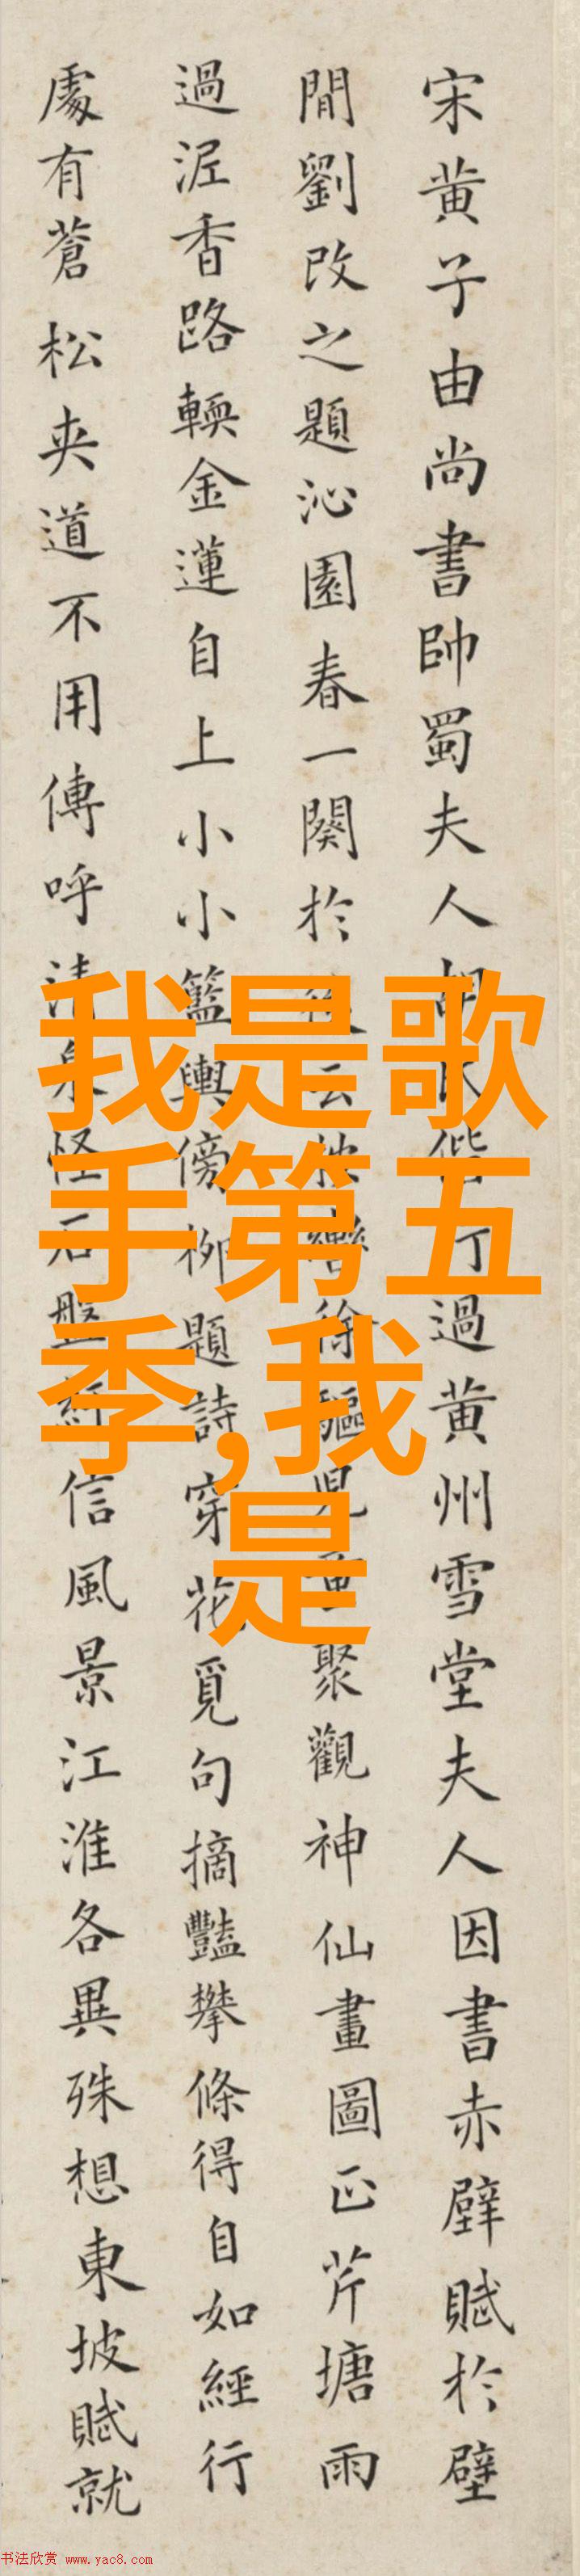 宋黄子由尚書帥蜀夫人胡氏偕行過黄州雪堂夫人因書赤壁賦於壁
間劉改之題沁園春一闋於後云按轡徐驅兒童聚觀神仙畫圖正芹塘雨
過泥香路輭金蓮自上小小籃輿傍柳題詩穿花覓句摘豔攀條得自如經行
處有蒼松夾道不用傳呼清泉怪石盤紆信風景江淮各異殊想東坡賦就
我是歌
手第五
季,我
是
书法欣赏 www.yac8.com